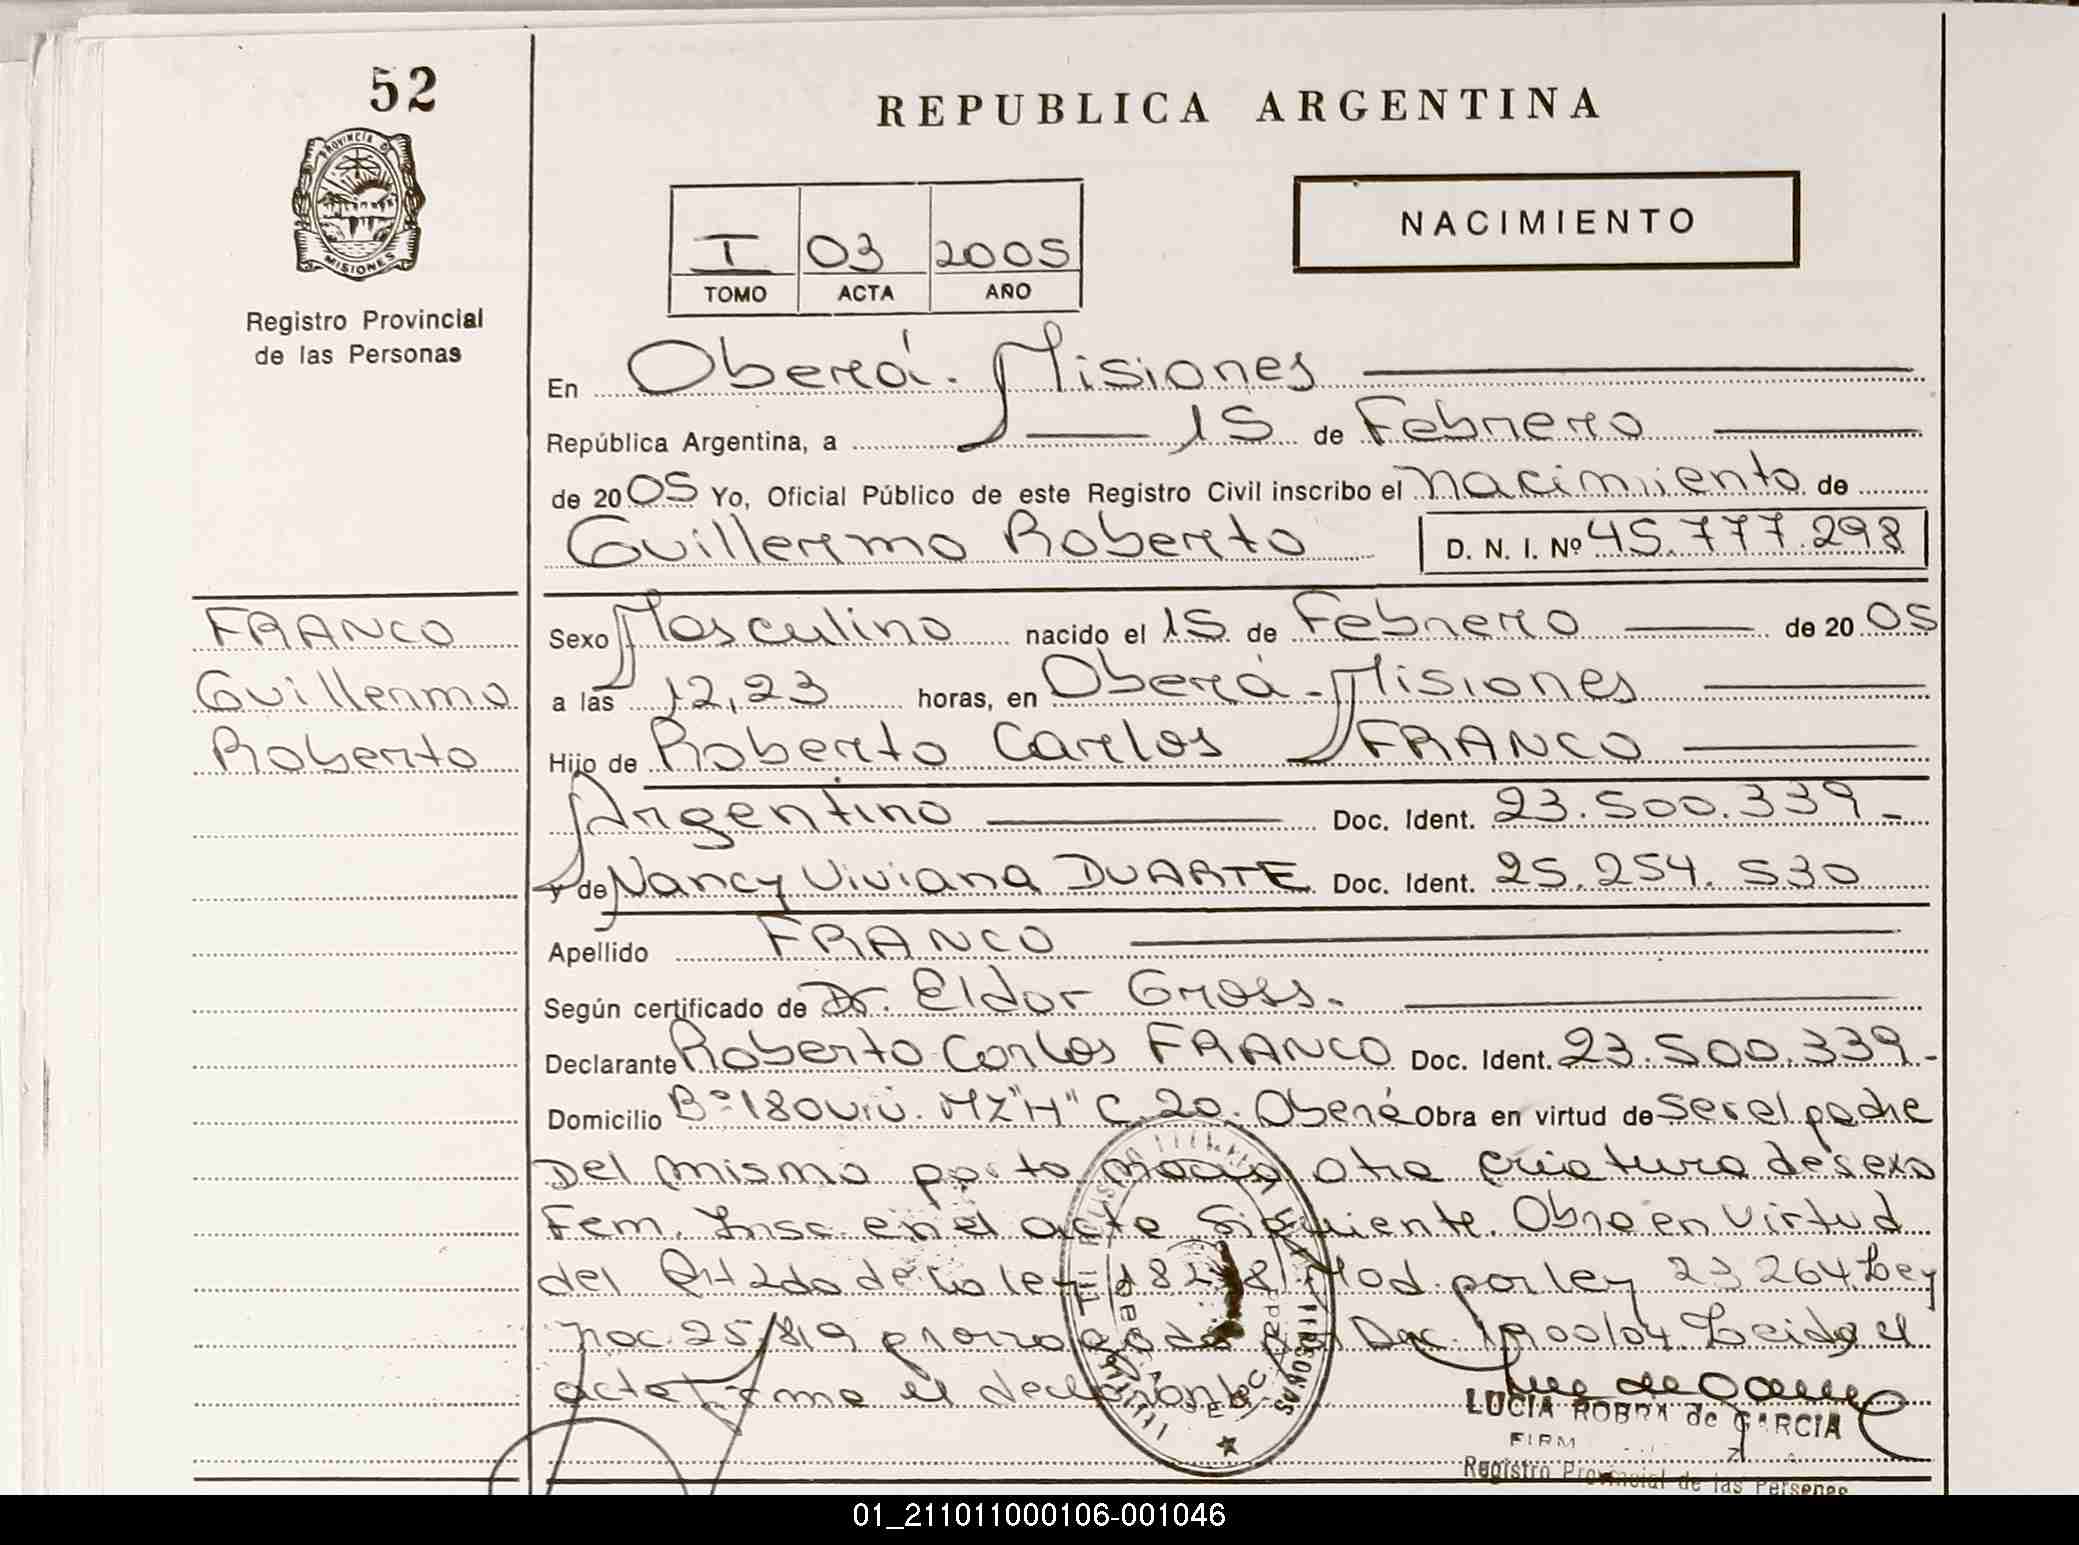 52
PROVINCIA D
MISIONES
Registro Provincial
de las Personas
REPUBLICA ARGENTINA
NACIMIENTO
I 03 2005
TOMO ACTA AÑO
En Oberá. Misiones
República Argentina, a 15 de Febrero
de 2005 Yo, Oficial Público de este Registro Civil inscribo el nacimiento de
Guillermo Roberto D. N. I. Nº 45.777.298
FRANCO
Guillermo
Roberto
Sexo Masculino nacido el 15 de Febrero de 2005
a las 12,23 horas, en Oberá - Misiones
Hijo de Roberto Carlos FRANCO
Argentino Doc. Ident. 23.500.339-
y de Nancy Viviana DUARTE Doc. Ident. 25.254.530
Apellido FRANCO
Según certificado de Dr. Eldor Gross.
Declarante Roberto Carlos FRANCO Doc. Ident. 23.500.339-
Domicilio Bº 180 viv. Mz "H" C. 20. Oberá Obra en virtud de ser el padre
Del mismo parto otra criatura de sexo
Fem. Insc. en el acta siguiente. Obra en virtud
del de la ley Mod. por ley 23264. Ley
nac. 25.819 prorrogada Dec. 1900/04. Leida el
acta firma el declarante
LUCIA ROBRA de GARCIA
FIRM
Registro Provincial de las Personas
01_211011000106-001046